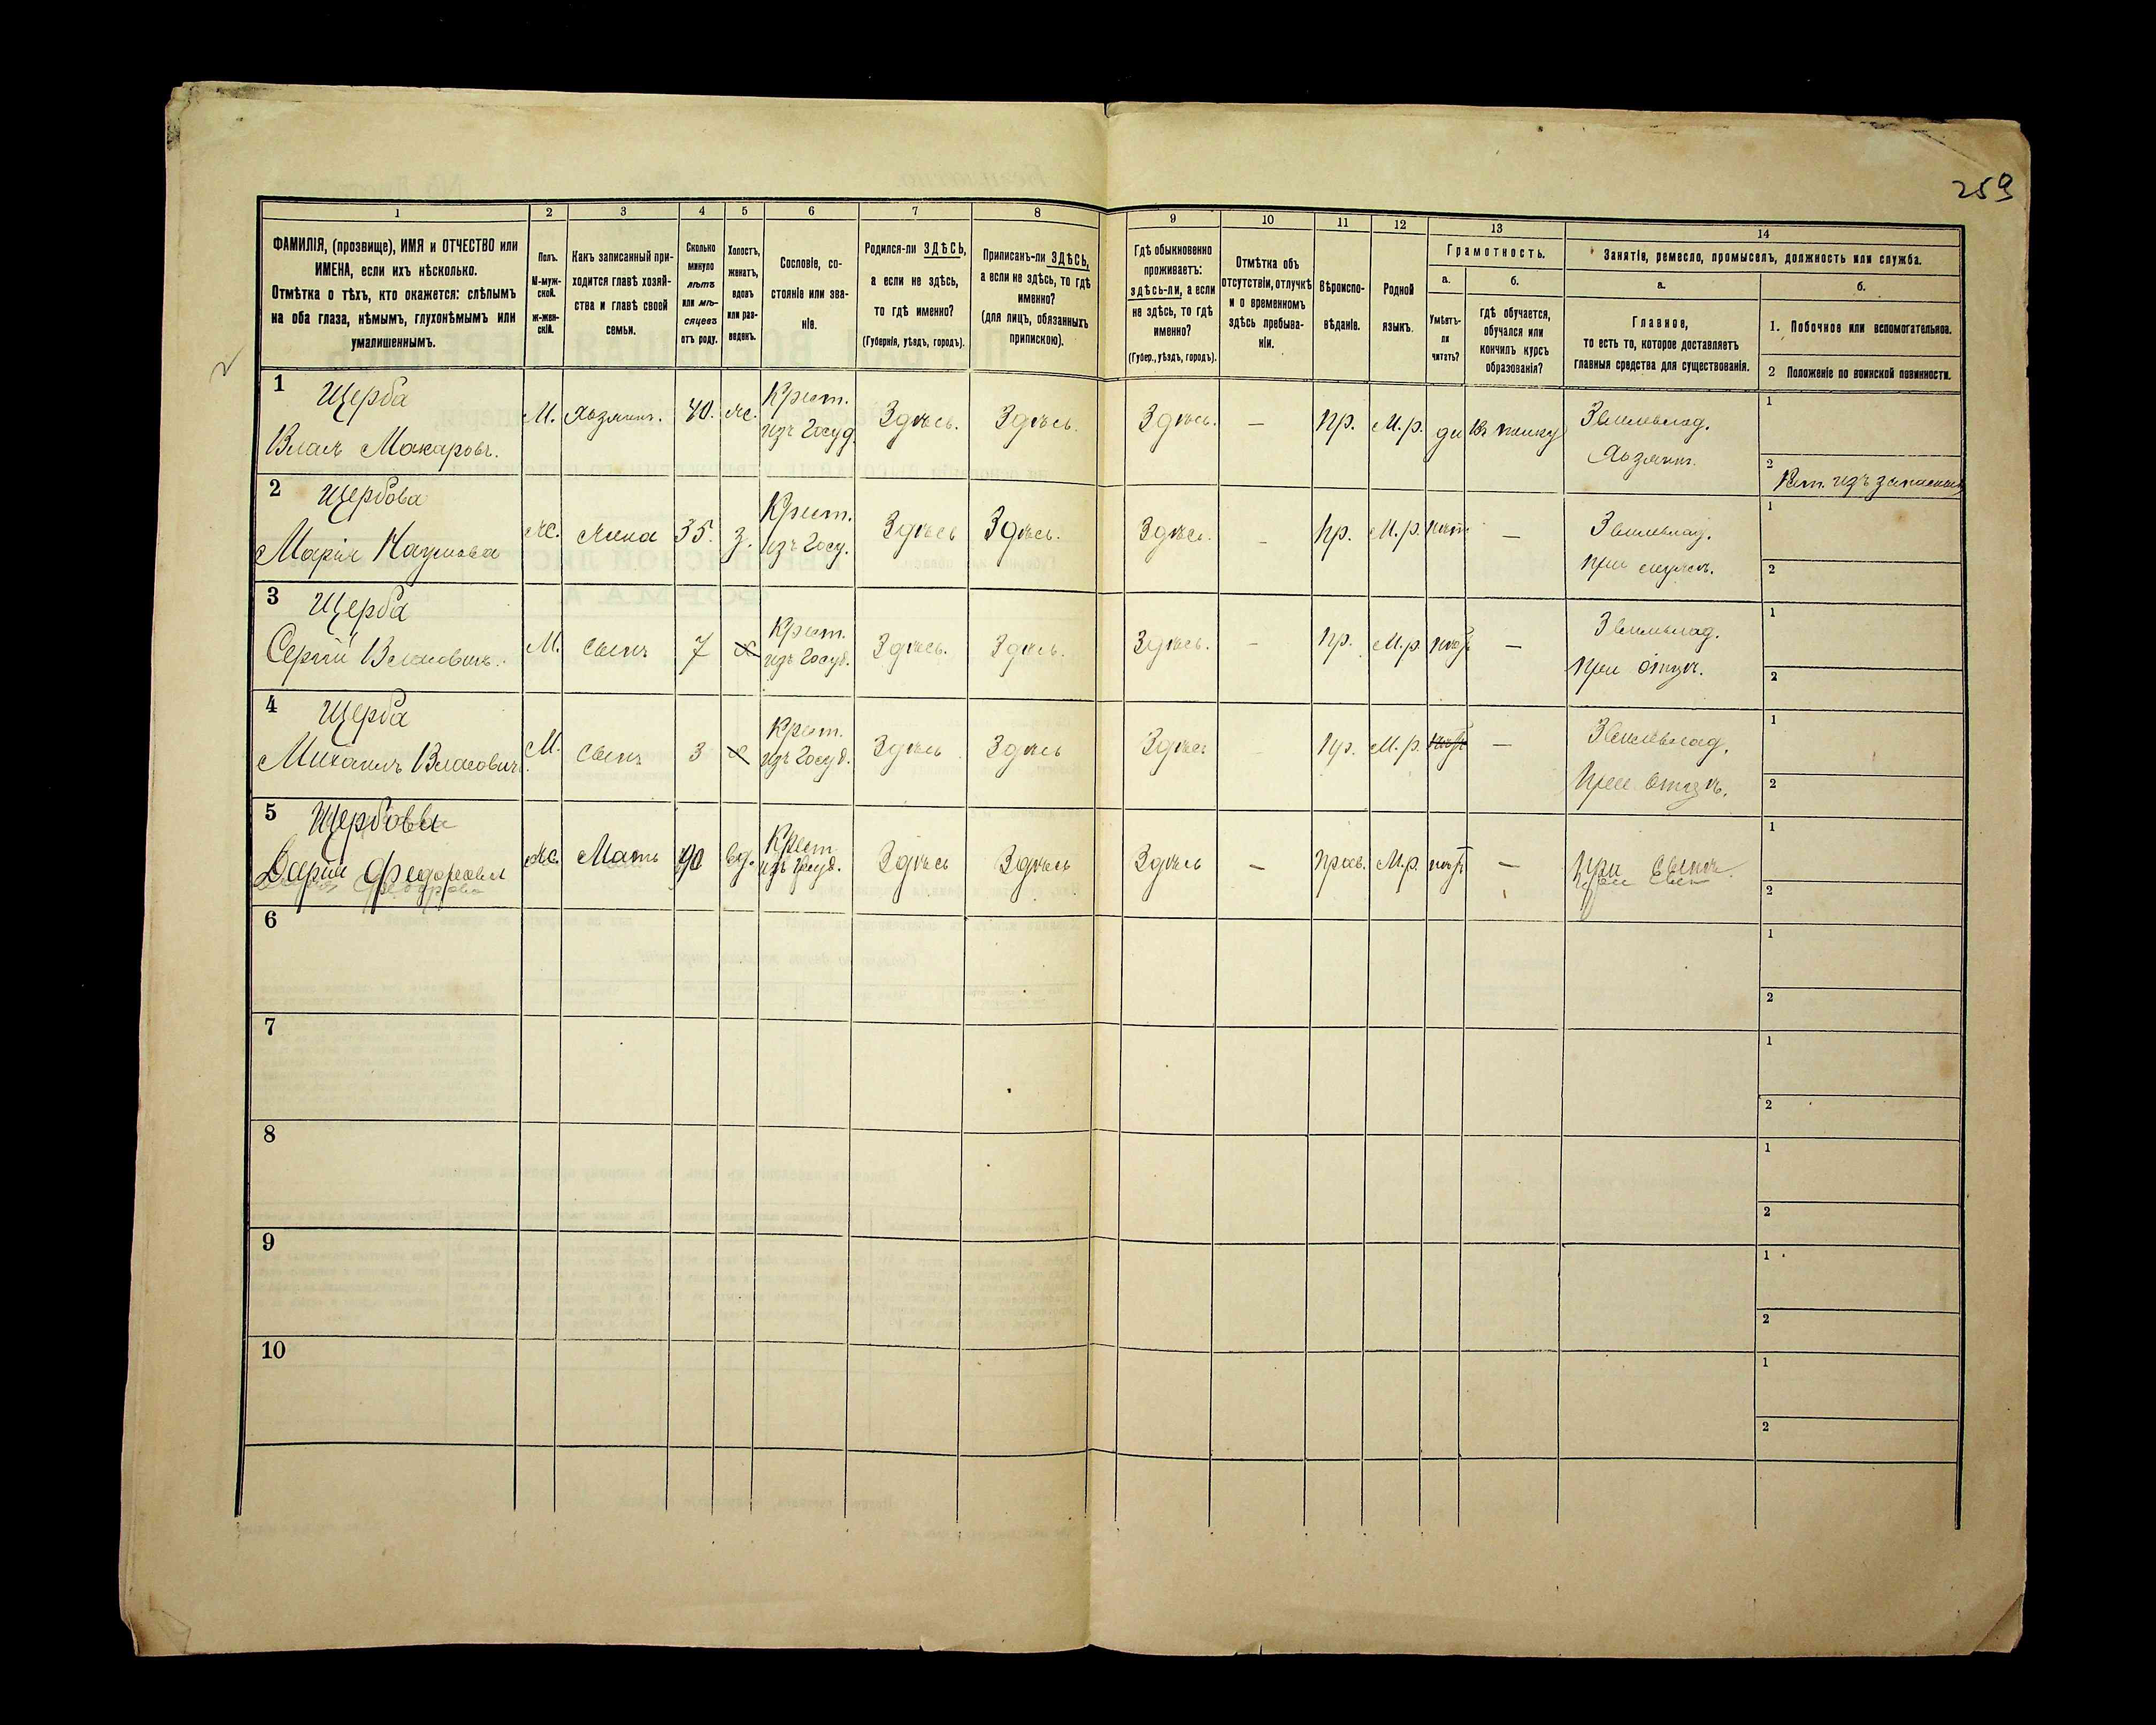 259
1
2
3
4
5
6
7
8
9
10
11
12
13
14
ФАМИЛІЯ, (прозвище), ИМЯ и ОТЧЕСТВО или
ИМЕНА, если ихъ нѣсколько.
Отмѣтка о тѣхъ, кто окажется: слѣпымъ
на оба глаза, нѣмымъ, глухонѣмымъ или
умалишеннымъ.
Полъ.
М-муж-
ской.
Ж-жен-
скій.
Какъ записанный при-
ходится главѣ хозяй-
ства и главѣ своей
семьи.
Сколько
минуло
лѣтъ
или мѣ-
сяцевъ
отъ роду.
Холостъ,
женатъ,
вдовъ
или раз-
веденъ.
Сословіе, со-
стояніе или зва-
ніе.
Родился-ли ЗДѢСЬ,
а если не здѣсь,
то гдѣ именно?
(Губернія, уѣздъ, городъ).
Приписанъ-ли ЗДѢСЬ,
а если не здѣсь, то гдѣ
именно?
(для лицъ, обязанныхъ
припискою).
Гдѣ обыкновенно
проживаетъ:
здѣсь-ли, а если
не здѣсь, то гдѣ
именно?
(Губер., уѣздъ, городъ).
Отмѣтка объ
отсутствіи, отлучкѣ
и о временномъ
здѣсь пребыва-
ніи.
Вѣроиспо-
вѣданіе.
Родной
языкъ.
Грамотность.
а.
Умѣетъ-
ли
читать?
б.
гдѣ обучается,
обучался или
кончилъ курсъ
образованія?
Занятіе, ремесло, промыселъ, должность или служба.
а.
Главное,
то есть то, которое доставляетъ
главныя средства для существованія.
б.
1. Побочное или вспомогательное.
2 Положеніе по воинской повинности.
1 Щерба
Власъ Макаровъ.
М. Хозяинъ. 40. ж. Крест.
изъ Госуд.
Здѣсь. Здѣсь. Здѣсь. — Пр. М.р. да въ полку
Землевлад.
Хозяин.
1
2
2 Щербова
Марія Наумова
ж. жена 35. з. Крест.
изъ Госу.
Здѣсь Здѣсь. Здѣсь. — Пр. М.р. нѣт —
Землевлад.
при мужѣ.
1
2
3 Щерба
Сергій Власовичъ.
М. сынъ 7 х Крест.
изъ Госуд.
Здѣсь. Здѣсь. Здѣсь. — Пр. М.р. нѣт —
Землевлад.
при отцѣ.
1
2
4 Щерба
Михаилъ Власовичъ
М. сынъ 3 х Крест.
изъ Госуд.
Здѣсь Здѣсь Здѣсь Пр. М.р. нѣт —
Землевлад.
При отцѣ.
1
2
5 Щербова
Дарія Федорова
ж. Мать вд. Крест.
изъ Госуд.
Здѣсь Здѣсь Здѣсь — Прав. М.р. нѣт —
при сынѣ.
1
2
6
1
2
7
1
2
8
1
2
9
1
2
10
1
2